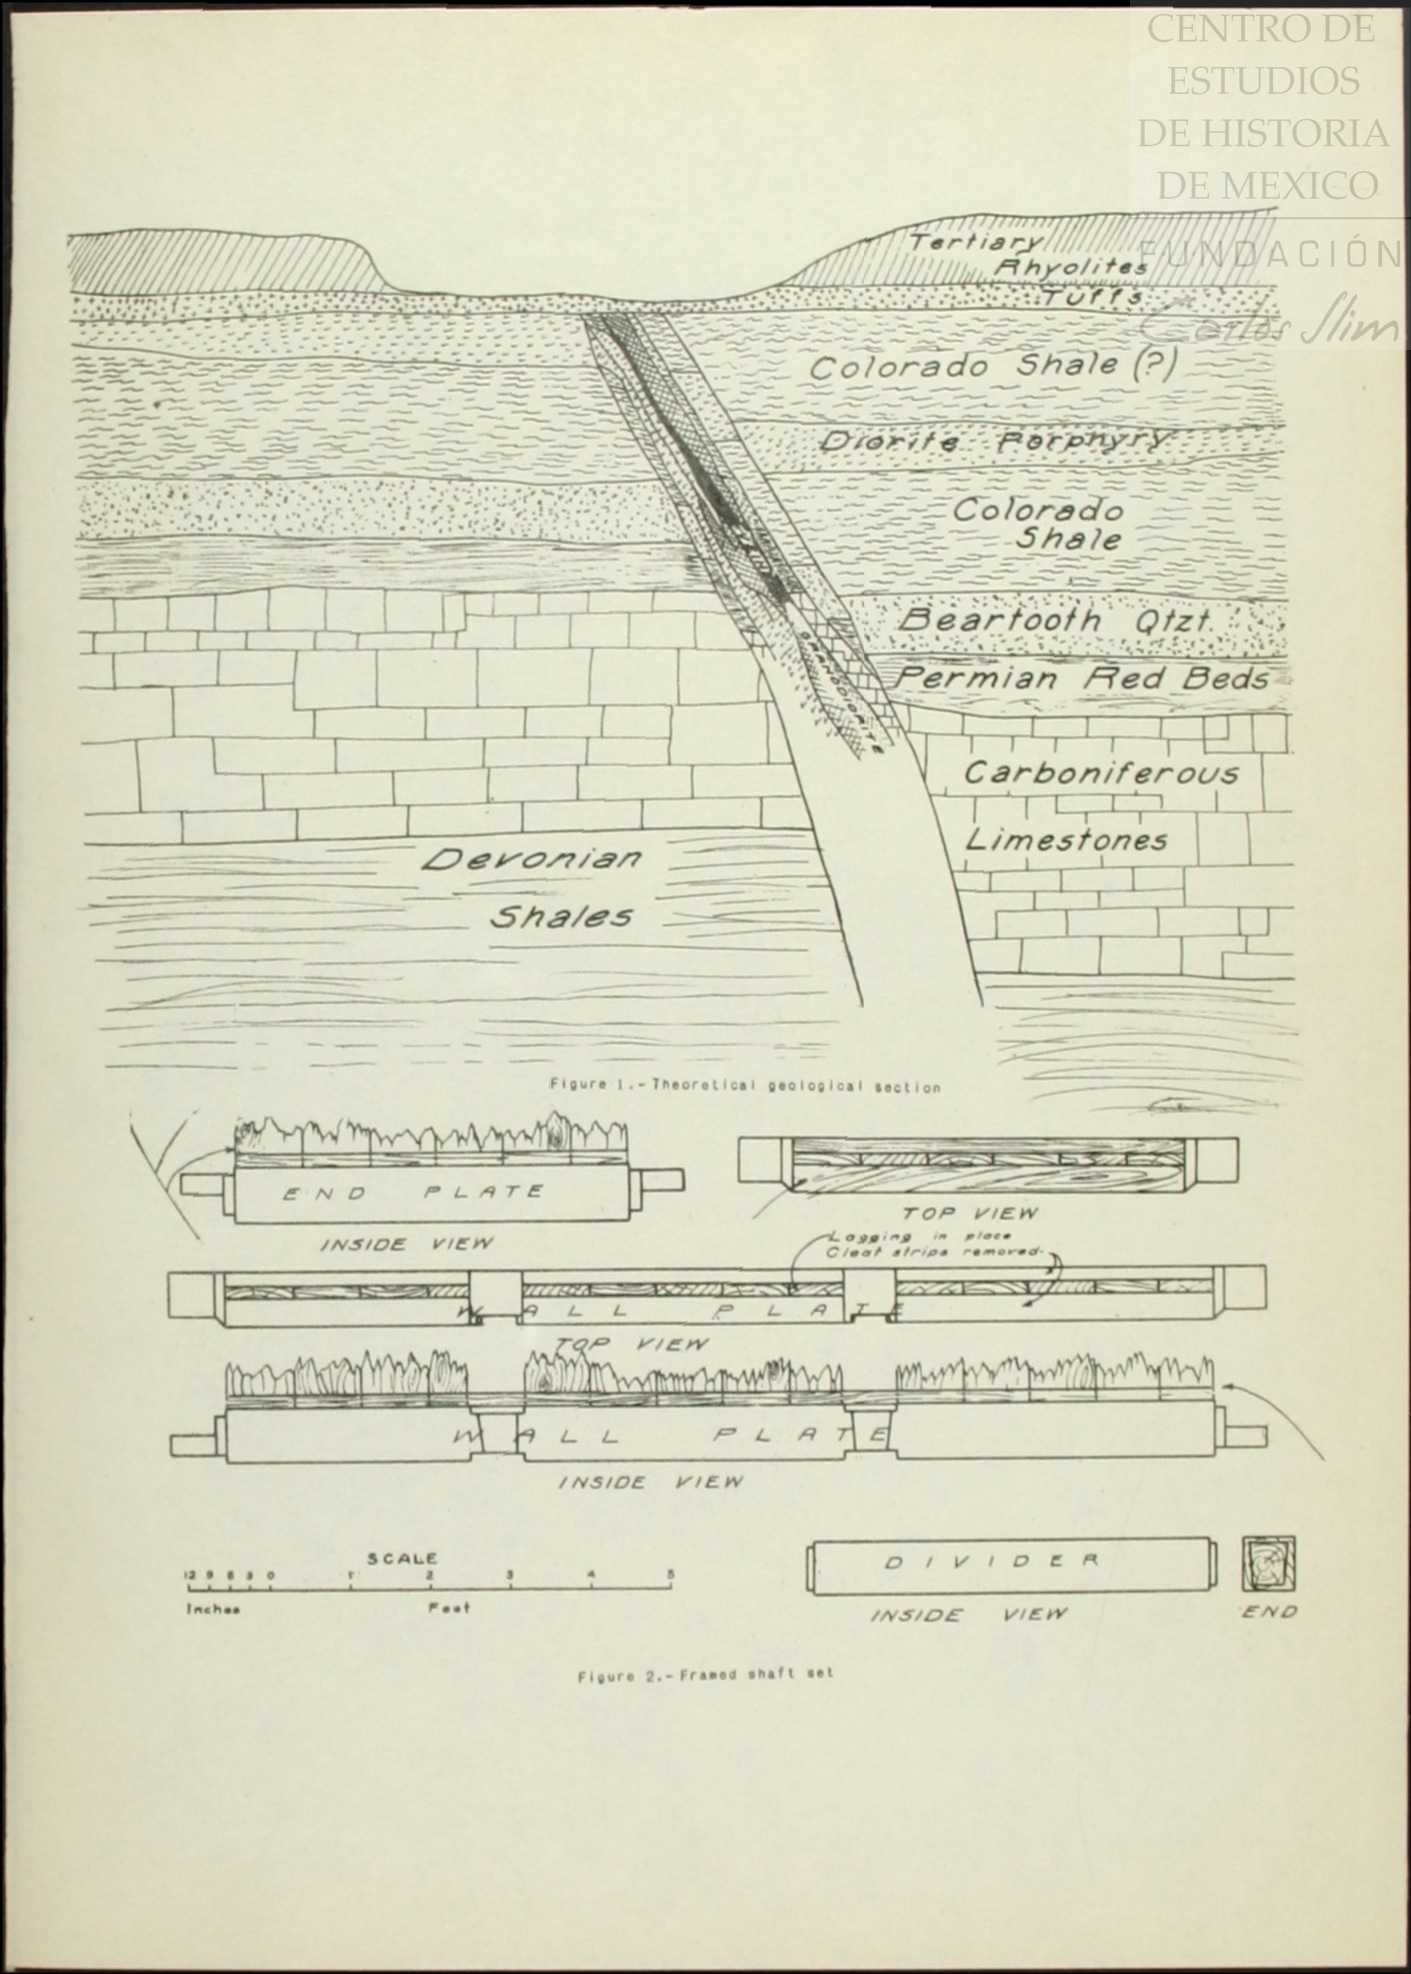 CENTRO DE
ESTUDIOS
DE HISTORIA
DE MEXICO
FUNDACIÓN
Carlos Slim
Tertiary
Rhyolites
Tuffs
Colorado Shale (?)
Diorite Porphyry
Colorado
Shale
Beartooth Qtzt.
Permian Red Beds
VEIN
GRANODIORITE
Carboniferous
Limestones
Devonian
Shales
Figure 1.-Theoretical geological section
END PLATE
INSIDE VIEW
TOP VIEW
Lagging in place
Cleat strips removed
WALL PLATE
TOP VIEW
WALL PLATE
INSIDE VIEW
SCALE
12 9 6 3 0 1' 2 3 4 5
Inches Feet
DIVIDER
INSIDE VIEW
END
Figure 2.-Framed shaft set